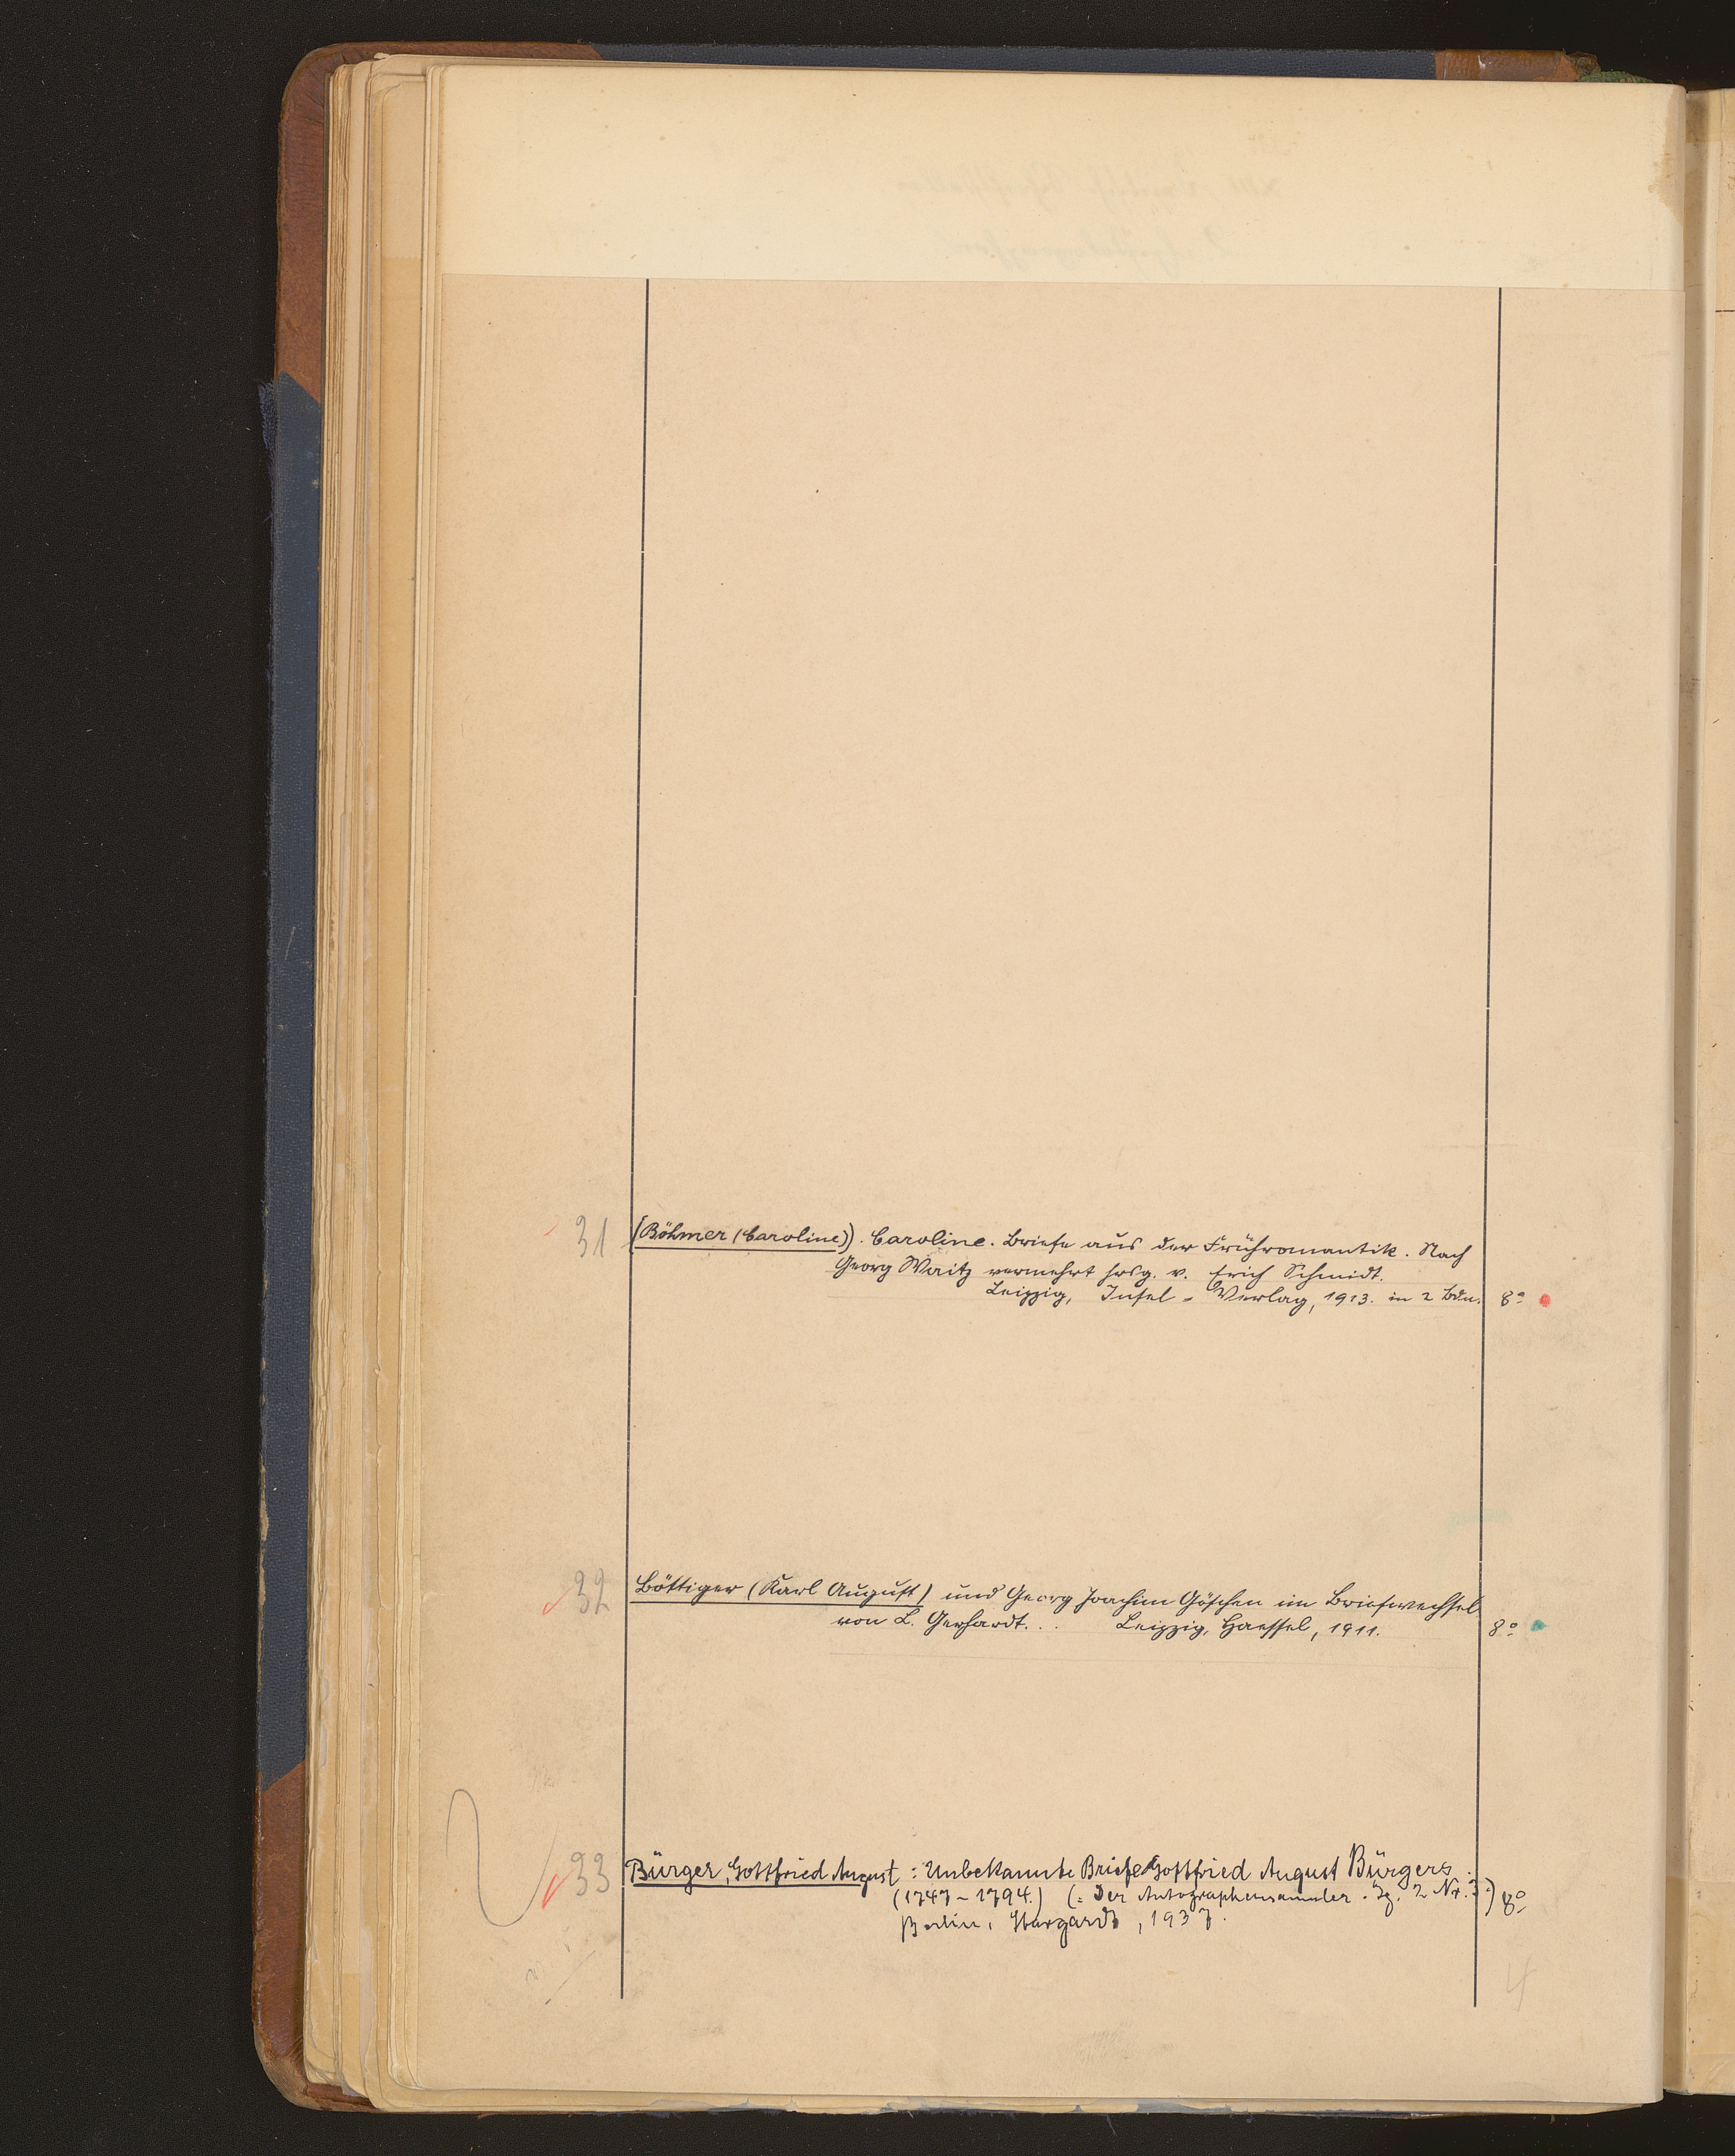 31 (Böhmer (Caroline)). Caroline. Briefe aus der Frühromantik. Nach
Georg Waitz vermehrt hrsg. v. Erich Schmidt.
Leipzig, Insel-Verlag, 1913. in 2 Bdn. 8°
32 Böttiger (Karl August) und Georg Joachim Göschen im Briefwechsel
von L. Gerhardt... Leipzig, Haessel, 1911. 8°
33 Bürger, Gottfried August: Unbekannte Briefe Gottfried August Bürgers.
(1747-1794.) (= Der Autographensammler. Jg. 2 Nr. 3.) 8°
Berlin, Stargardt, 1937.
4